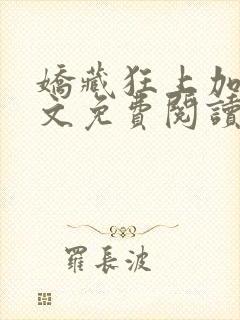 嬌藏狂上加
文免費閱讀
羅長波